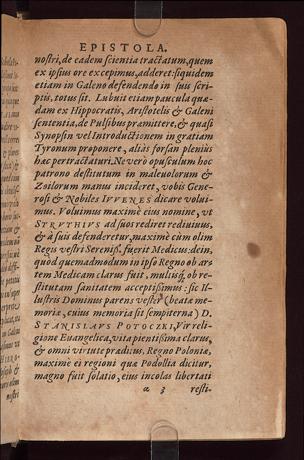 EPISTOLA.
nostri, de eadem scientia tractatum, quem
ex ipsius ore excepimus, adderet: siquidem
etiam in Galeno defendendo in suis scri-
ptis, totus sit. Lubuit etiam paucula quæ-
dam ex Hippocratis, Aristotelis & Galeni
sententia, de Pulsibus præmittere, & quasi
Synopsin vel Introductionem in gratiam
Tyronum proponere, aliàs forsan plenius
hæc pertractaturi. Ne verò opusculum hoc
patrono destitutum in malevolorum &
Zoilorum manus incideret, vobis Gene-
rosi & Nobiles IVVENES dicare volui-
mus. Voluimus maximè eius nomine, vt
STRVTHIVS ad suos rediret redivivus,
& à suis defenderetur, maximè cùm olim
Regis vestri Sereniss. fuerit Medicus: dein,
quòd quemadmodum in ipso Regno ob ar-
tem Medicam clarus fuit, multisq; ob re-
stitutam sanitatem acceptissimus: sic Il-
lustris Dominus parens vester (beatæ me-
moriæ, cuius memoria sit sempiterna) D.
STANISLAVS POTOCZKI, Vir reli-
gione Euangelica, vita pientissima clarus,
& omni virtute præditus, Regno Poloniæ,
maximè ei regioni quæ Podollia dicitur,
magno fuit solatio, eius incolas libertati
a 3 resti-